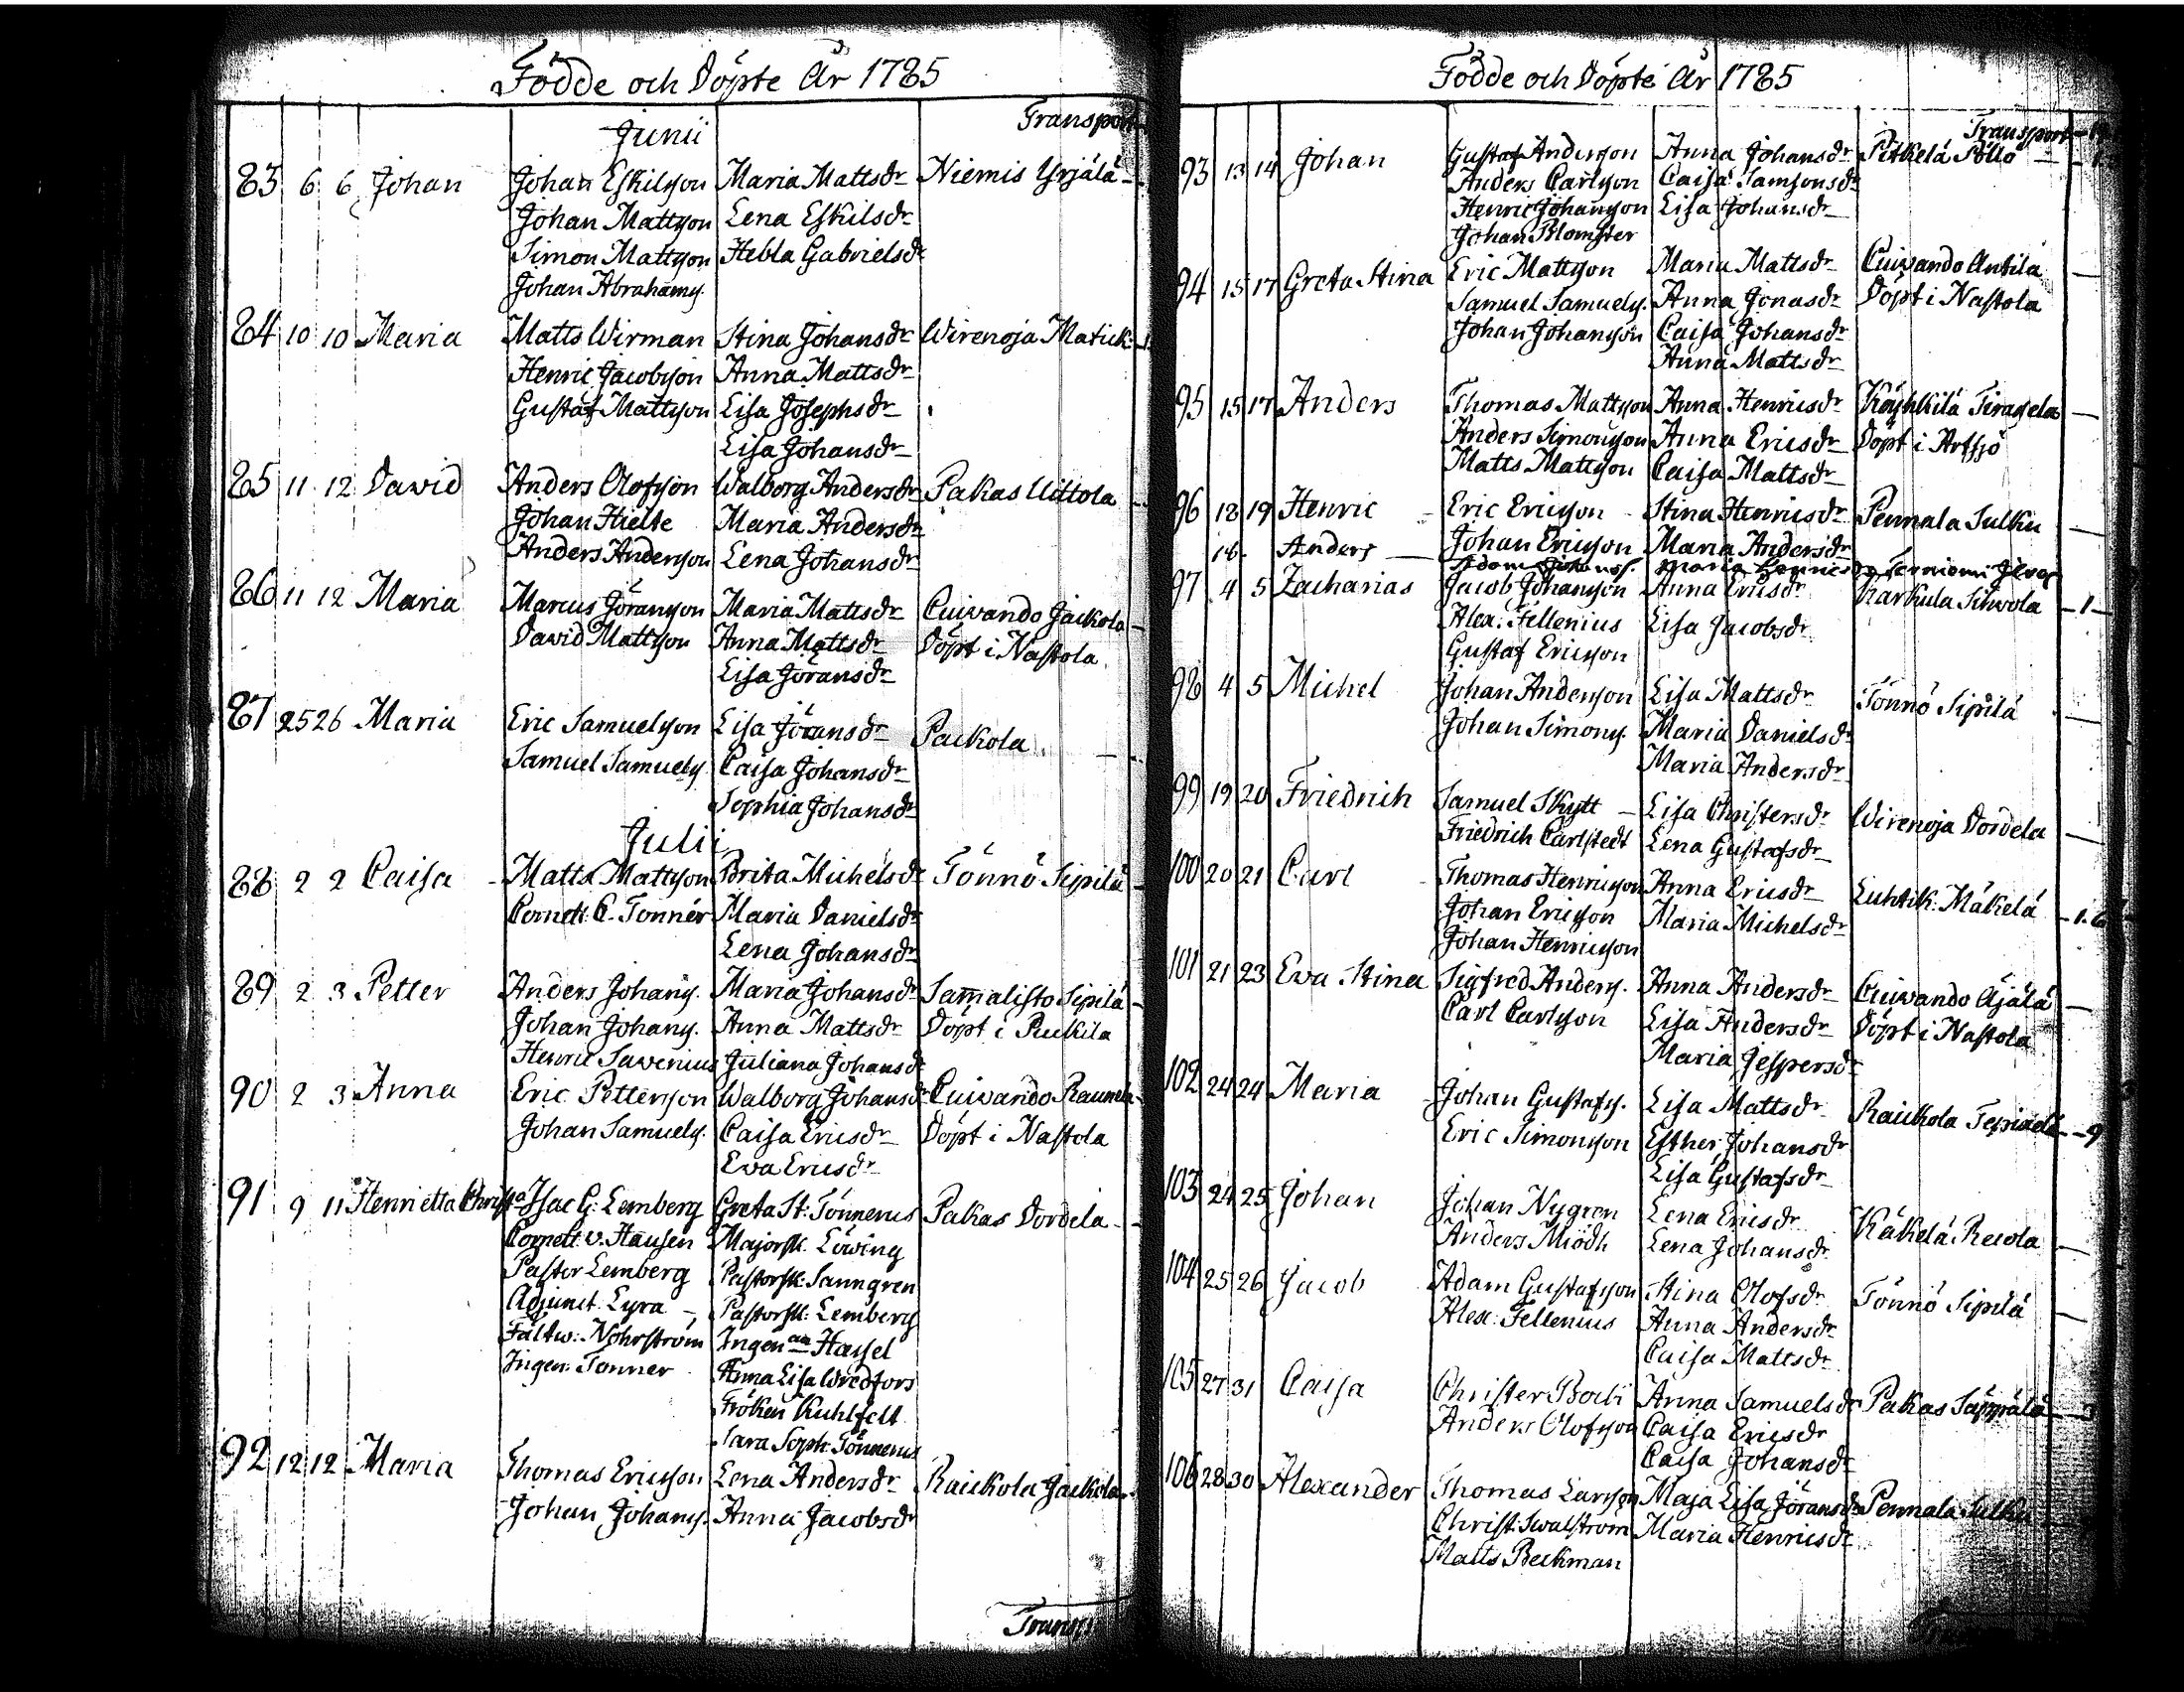 Födde och Döpte År 1785
Transport
Junii
83 6 6 Johan Johan Eskilsson Maria Mattsdr Niemis Yrjälä
Johan Mattsson Lena Eskilsdr
Simon Mattsson Hebla Gabrielsdr
Johan Abrahams.
84 10 10 Maria Matts Wirman Stina Johansdr Wirenoja Matick.
Henric Jacobsson Anna Mattsdr
Gustaf Mattsson Lisa Josephsdr
Lisa Johansdr
85 11 12 David Anders Olofsson Walborg Andersdr Pakas Uittola
Johan Hielte Maria Andersdr
Anders Andersson Lena Johansdr
86 11 12 Maria Marcus Jöransson Maria Mattsdr Cuivando Jackola
David Mattsson Anna Mattsdr Döpt i Nastola
Lisa Jöransdr
87 25 26 Maria Eric Samuelsson Lisa Jöransdr Packola
Samuel Samuels. Caisa Johansdr
Sophia Johansdr
Julii
88 2 2 Caisa Matts Mattsson Brita Michelsdr Tönnö Sipilä
Cornett. C. Tonnér Maria Danielsdr
Lena Johansdr
89 2 3 Petter Anders Johans. Maria Johansdr Samalisto Sipilä
Johan Johans. Anna Mattsdr Döpt i Puckila
Henric Savenius Juliana Johansdr
90 2 3 Anna Eric Pettersson Walborg Johansdr Cuivando Raunela
Johan Samuels. Caisa Ericsdr Döpt i Nastola
Eva Ericsdr
91 9 11 Henrietta Christa Isac G: Lemberg Greta St: Tönnerus Pakas Dordela
Cornett. v. Hausen Majorsk. Löwing
Pastor Lemberg Pastorsk: Sanngren
Adjunct. Lyra Pastorsk: Lemberg
Fältw: Nohrström Ingenan Hassel
Ingen: Tonner Anna Lisa Wredfors
Fröken Kuhlfelt
Sara Soph: Tönnerus
92 12 12 Maria Thomas Ericsson Lena Andersdr Raickola Jackola
Johan Johans. Anna Jacobsdr
Födde och Döpte År 1785
Transport
93 13 14 Johan Gustaf Andersson Anna Johansdr Pitkelä Pöllö
Anders Carlsson Caisa Samsonsdr
Henric Johansson Lisa Johansdr
Johan Blomster
94 15 17 Greta Stina Eric Mattsson Maria Mattsdr Cuivando Antila
Samuel Samuels. Anna Jonasdr Döpt i Nastola
Johan Johansson Caisa Johansdr
Anna Mattsdr
95 15 17 Anders Thomas Mattsson Anna Henricsdr Köyhkilä
Anders Simonsson Anna Ericsdr Döpt i Artsjö
Matts Mattsson Caisa Mattsdr
96 18 19 Henric Eric Ericsson Stina Henricsdr Pennala Sulku
18. Anders Johan Ericsson Maria Andersdr
Adam Johanss. Maria
97 4 5 Zacharias Jacob Johansson Anna Ericsdr Karkula Sihvola 1
Alex: Fellenius Lisa Jacobsdr
Gustaf Ericsson
98 4 5 Michel Johan Andersson Lisa Mattsdr Tönnö Sipilä
Johan Simons. Maria Danielsdr
Maria Andersdr
99 19 20 Friedrich Samuel Skytt Lisa Christersdr Wirenoja Dordela
Friedrich Carlstedt Lena Gustafsdr
100 20 21 Carl Thomas Henricsson Anna Ericsdr Luhtik: Mäkelä 1.6
Johan Ericsson Maria Michelsdr
Johan Henricsson
101 21 23 Eva Stina Sigfred Anders. Anna Andersdr Cuivando Ajälä
Carl Carlsson Lisa Andersdr Döpt i Nastola
Maria Jespersdr
102 24 24 Maria Johan Gustafs. Lisa Mattsdr Raickola 9
Eric Simonsson Esther Johansdr
Lisa Gustafsdr
103 24 25 Johan Johan Nygren Lena Ericsdr Käkelä Recola
Anders Miödh Lena Johansdr
104 25 26 Jacob Adam Gustafsson Stina Olofsdr Tönnö Sipilä
Alex: Fellenius Anna Andersdr
Caisa Mattsdr
105 27 31 Caisa Christer Anna Samuelsdr Pakas Säppälä
Anders Olofsson Caisa Ericsdr
Caisa Johansdr
106 28 30 Alexander Thomas Larsson Maja Lisa Jöransdr Pennala Sulku
Christ: Swalström Maria Henricsdr
Matts Beckman